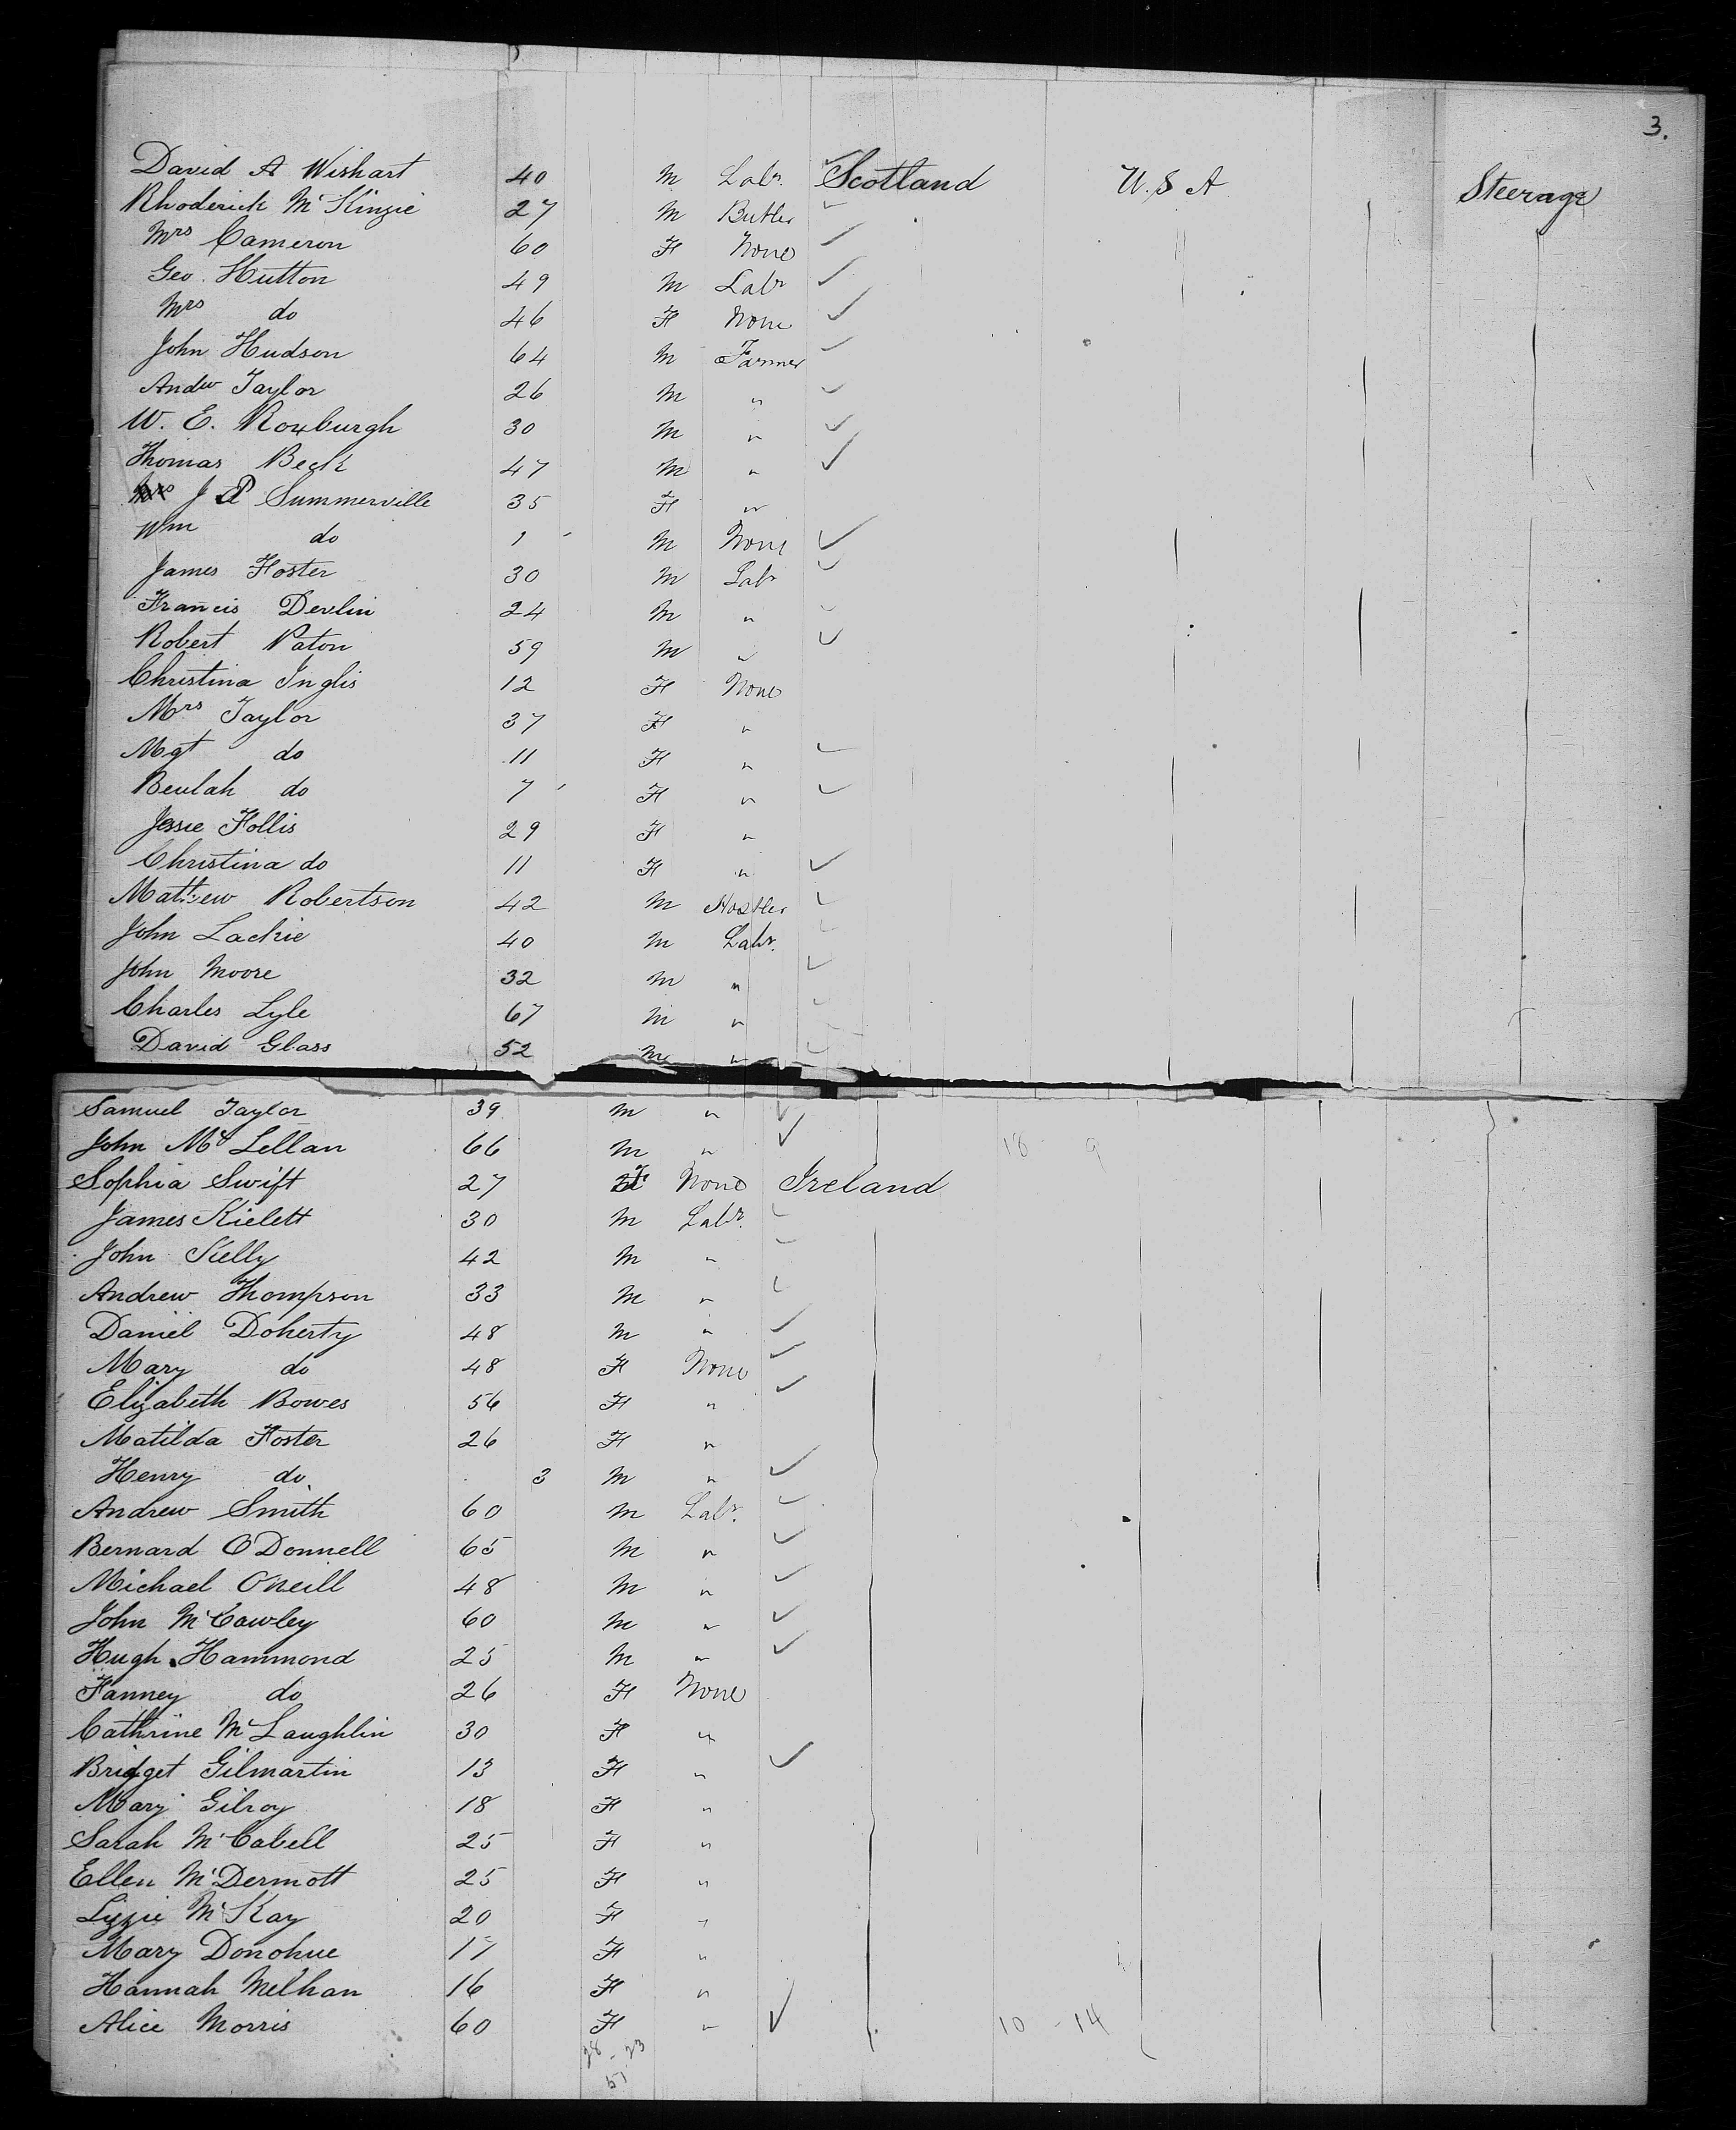 3.
David A Wishart 40 M Labr. Scotland U.S.A Steerage
Rhoderick McKinzie 27 M Butler
Mrs Cameron 60 F None
Geo. Hutton 49 M Labr
Mrs do 46 F None
John Hudson 64 M Farmer
Andw Taylor 26 M "
W. E. Roxburgh 30 M "
Thomas Beck 47 M "
J P Summerville 35 F "
Wm do 1 M None
James Foster 30 M Labr
Francis Devlin 24 M "
Robert Paton 59 M "
Christina Inglis 12 F None
Mrs Taylor 37 F "
Mgt do 11 F "
Beulah do 7 F "
Jessie Follis 29 F "
Christina do 11 F "
Matthew Robertson 42 M Hostler
John Lackie 40 M Labr.
John Moore 32 M "
Charles Lyle 67 M "
David Glass 52 M "
Samuel Taylor 39 M "
John McLellan 66 M " 18 9
Sophia Swift 27 F None Ireland
James Kielett 30 M Labr.
John Kelly 42 M "
Andrew Thompson 33 M "
Daniel Doherty 48 M "
Mary do 48 F None
Elizabeth Bowes 56 F "
Matilda Foster 26 F "
Henry do 3 M "
Andrew Smith 60 M Labr.
Bernard O'Donnell 65 M "
Michael O'neill 48 M "
John McCawley 60 M "
Hugh Hammond 25 M "
Fanney do 26 F None
Cathrine McLaughlin 30 F "
Bridget Gilmartin 13 F "
Mary Gilroy 18 F "
Sarah McCabell 25 F "
Ellen McDermott 25 F "
Lizzie McKay 20 F "
Mary Donohue 17 F "
Hannah Melhan 16 F "
Alice Morris 60 F " 10 - 14
28 - 23
51